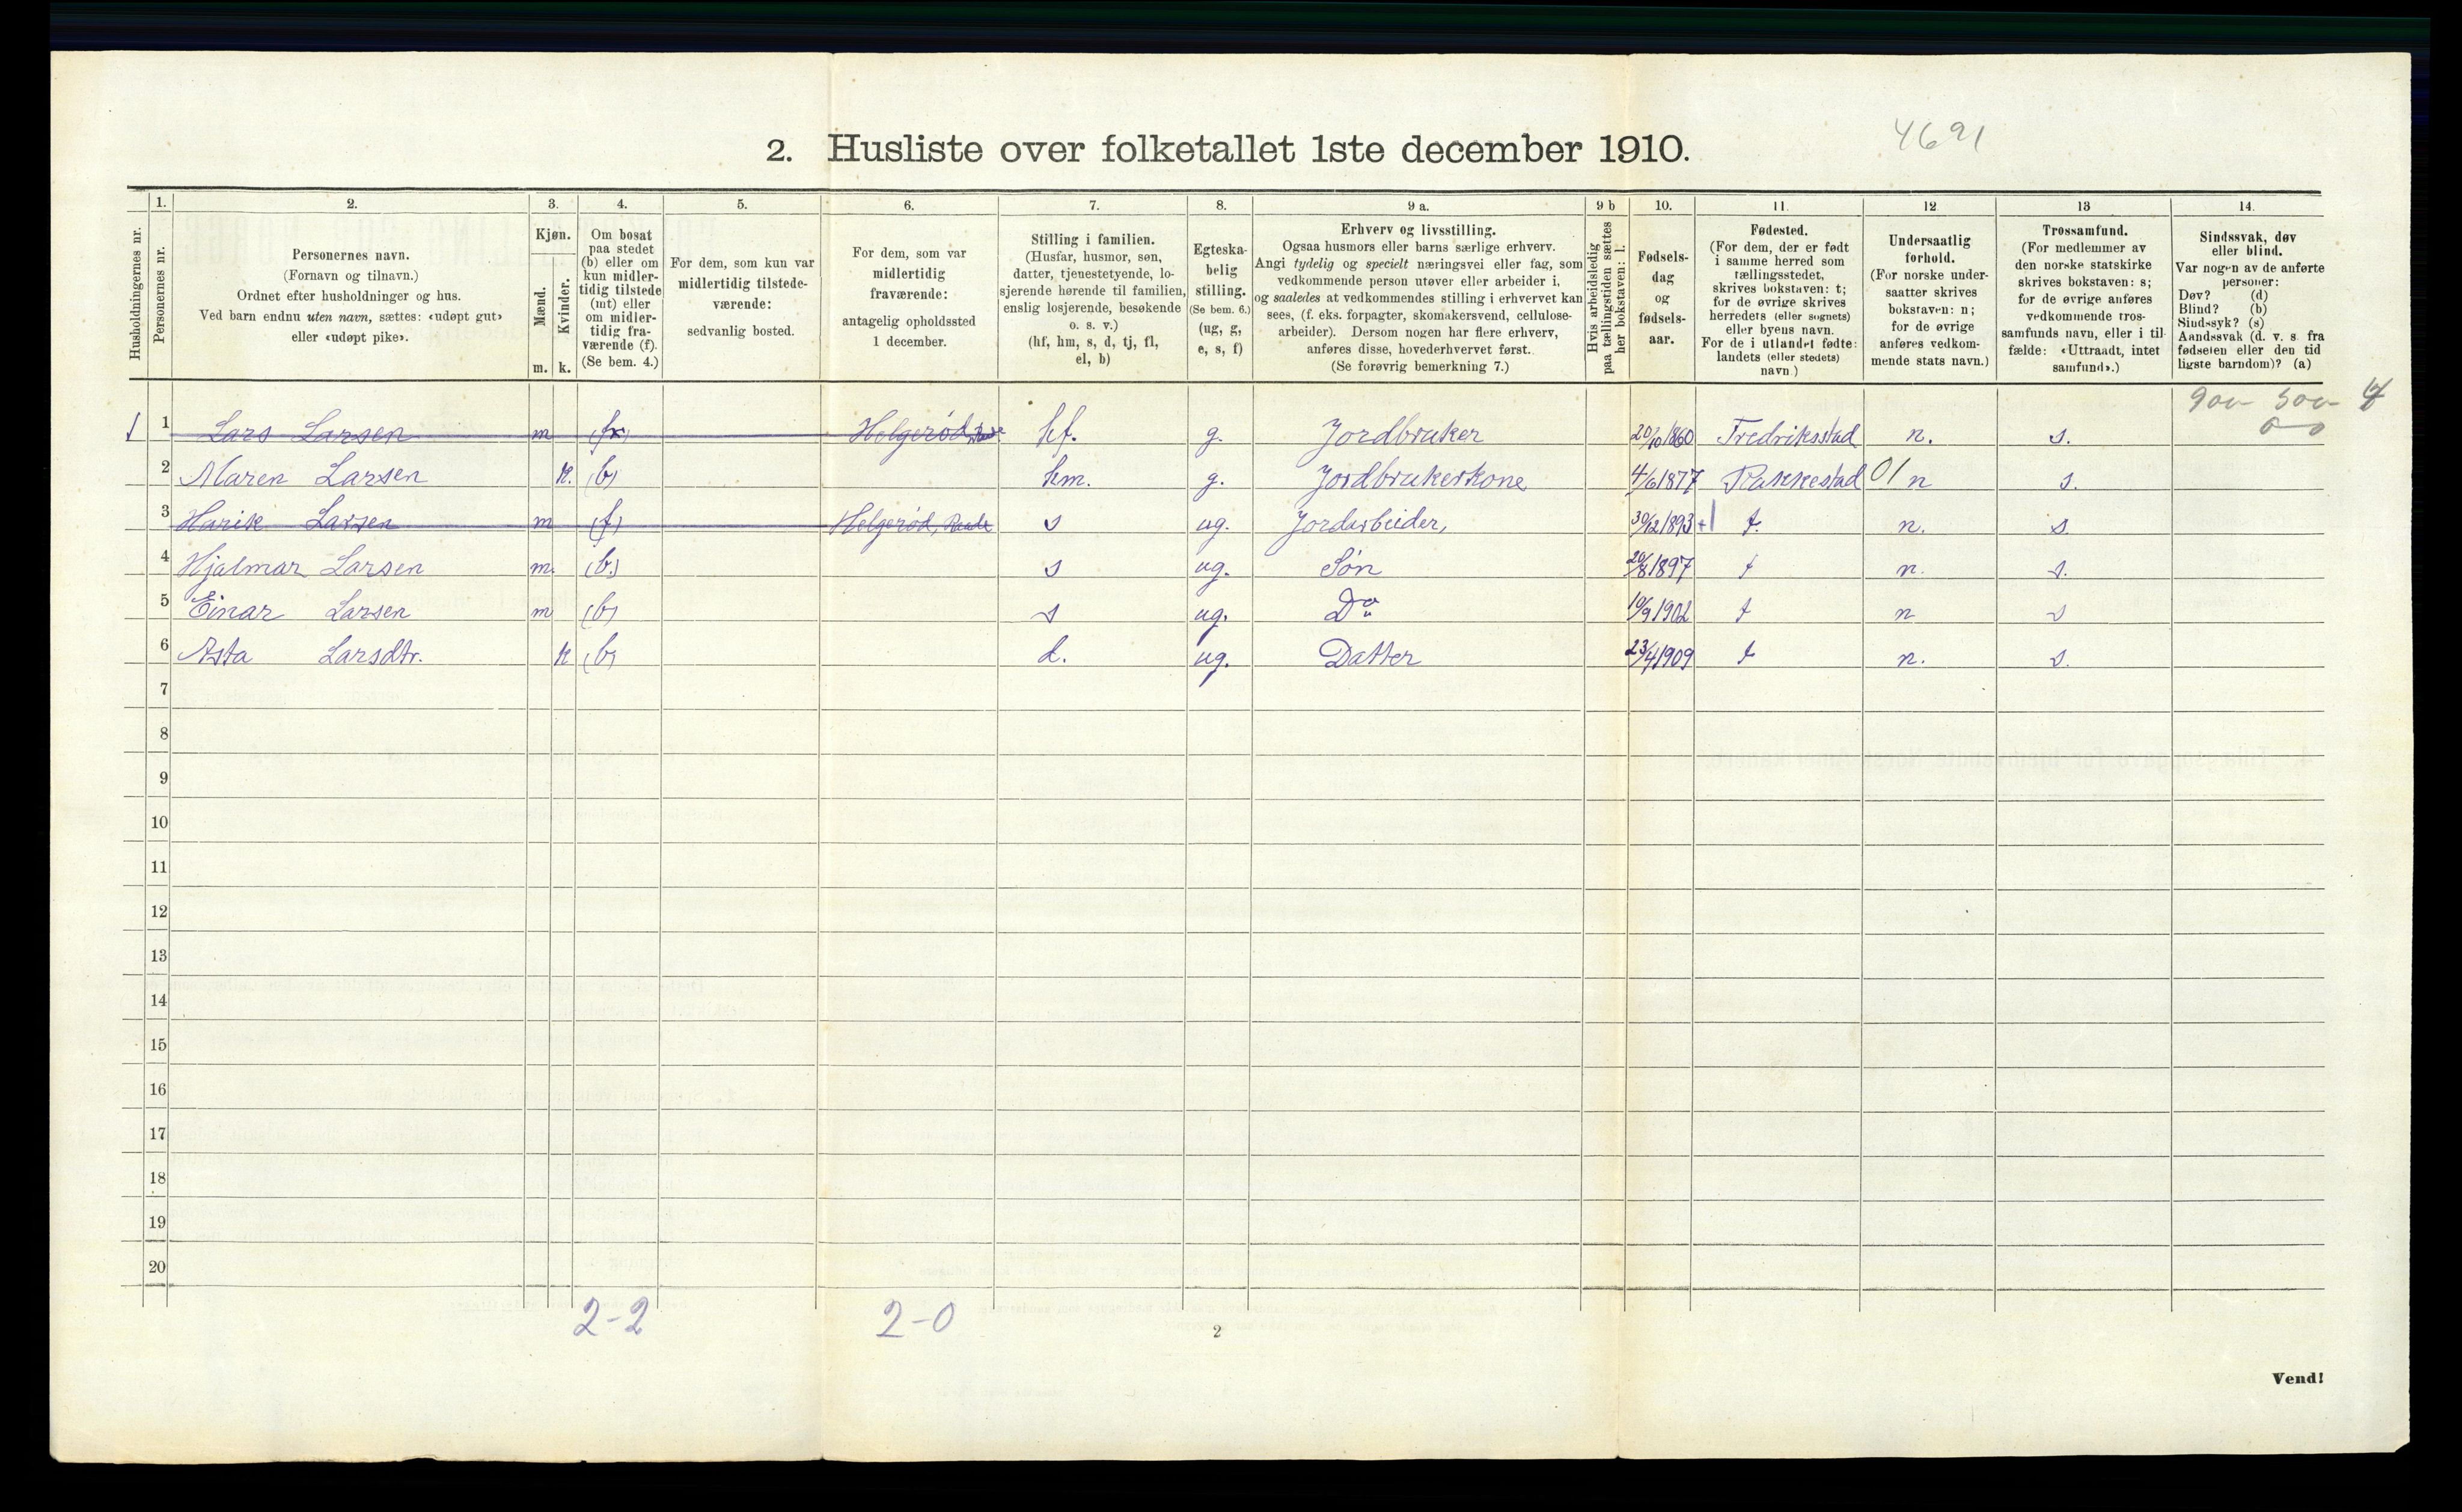 4691
2. Husliste over folketallet 1ste december 1910.
Husholdningernes nr.
1. Personernes nr.
2. Personernes navn.
(Fornavn og tilnavn.)
Ordnet efter husholdninger og hus.
Ved barn endnu uten navn, sættes: «udøpt gut»
eller «udøpt pike».
3. Kjøn.
Mænd. m.
Kvinder. k.
4. Om bosat
paa stedet
(b) eller om
kun midler-
tidig tilstede
(mt) eller
om midler-
tidig fra-
værende (f).
(Se bem. 4.)
5. For dem, som kun var
midlertidig tilstede-
værende:
sedvanlig bosted.
6. For dem, som var
midlertidig
fraværende:
antagelig opholdssted
1 december.
7. Stilling i familien.
(Husfar, husmor, søn,
datter, tjenestetyende, lo-
sjerende hørende til familien,
enslig losjerende, besøkende
o. s. v.)
(hf, hm, s, d, tj, fl,
el, b)
8. Egteska-
belig
stilling.
(Se bem. 6.)
(ug, g,
e, s, f)
9 a. Erhverv og livsstilling.
Ogsaa husmors eller barns særlige erhverv.
Angi tydelig og specielt næringsvei eller fag, som
vedkommende person utøver eller arbeider i,
og saaledes at vedkommendes stilling i erhvervet kan
sees, (f. eks. forpagter, skomakersvend, cellulose-
arbeider). Dersom nogen har flere erhverv,
anføres disse, hovederhvervet først.
(Se forøvrig bemerkning 7.)
9 b Hvis arbeidsledig
paa tællingstiden sættes
her bokstaven: l.
10. Fødsels-
dag
og
fødsels-
aar.
11. Fødested.
(For dem, der er født
i samme herred som
tællingsstedet,
skrives bokstaven: t;
for de øvrige skrives
herredets (eller sognets)
eller byens navn.
For de i utlandet fødte:
landets (eller stedets)
navn.)
12. Undersaatlig
forhold.
(For norske under-
saatter skrives
bokstaven: n;
for de øvrige
anføres vedkom-
mende stats navn.)
13 Trossamfund.
(For medlemmer av
den norske statskirke
skrives bokstaven: s;
for de øvrige anføres
vedkommende tros-
samfunds navn, eller i til-
fælde: «Uttraadt, intet
samfund».)
14. Sindssvak, døv
eller blind.
Var nogen av de anførte
personer:
Døv? (d)
Blind? (b)
Sindssyk? (s)
Aandssvak (d. v. s. fra
fødselen eller den tid-
ligste barndom)? (a)
1 1 Lars Larsen m (f) Helgerød, hf. g. Jordbruker 20/10 1860 Fredriksstad n. s.
2 Maren Larsen k. (b) hm. g. Jordbrukerkone 4/6 1877 Rakkestad 01 n s.
3 Larsen m (f) Helgerød, Raade s ug. Jordarbeider, 30/12 1893 t. n. s.
4 Hjalmar Larsen m. (b.) s ug. Søn 20/8 1897 t n. s.
5 Einar Larsen m (b) s ug. Do 10/9 1902 t n s
6 Asta Larsdtr. k (b) d. ug. Datter 23/4 1909 t n. s.
7
8
9
10
11
12
13
14
15
16
17
18
19
20
2-2 2-0
2
Vend!